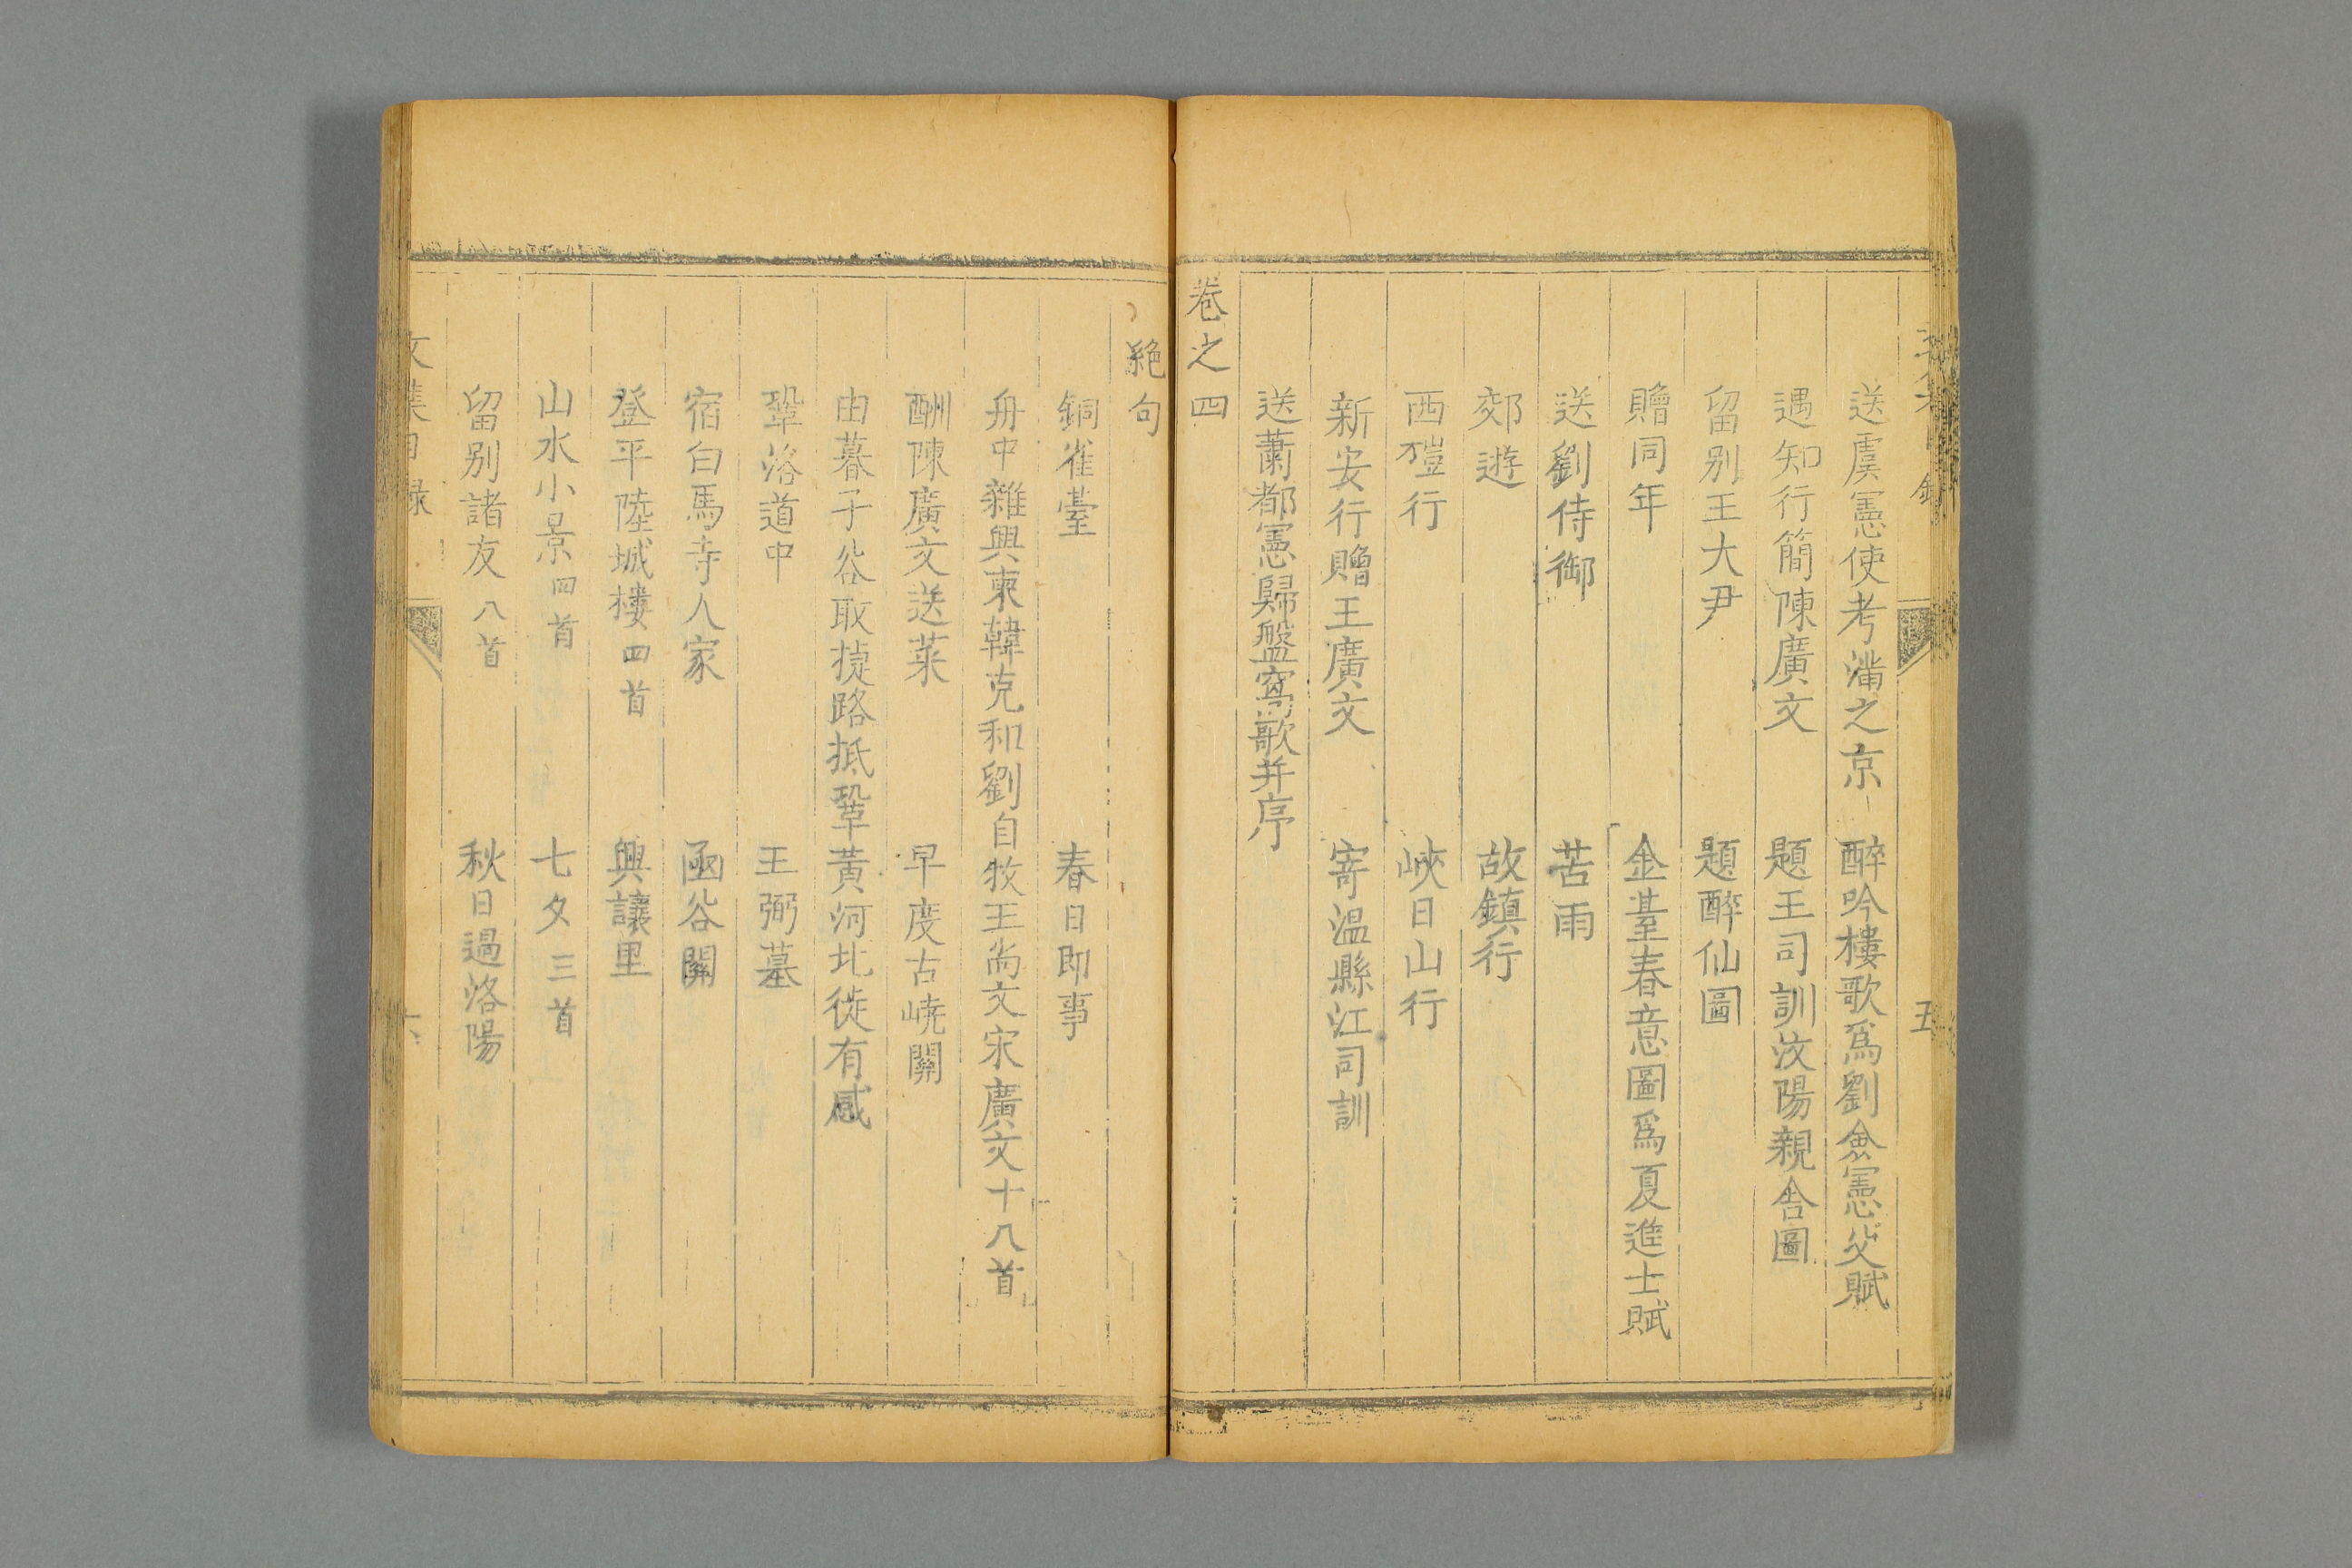 送虞憲使考滿之京　醉吟樓歌爲劉僉憲父賦
遇知行簡陳廣文　題王司訓汶陽親舍圖
留别王大尹　題醉仙圖
贈同年　金臺春意圖爲夏進士賦
送劉侍御　苦雨
郊遊　故鎮行
西磑行　峽日山行
新安行贈王廣文　寄溫縣江司訓
送蕭都憲歸盤窩歌并序
卷之四
絶句
銅雀臺　春日即事
舟中雜興柬韓克和劉自牧王尚文宋廣文十八首
酬陳廣文送菜　早度古嶢關
由暮子谷取捷路抵鞏黃河北徙有感
鞏洛道中　王弼墓
宿白馬寺人家　函谷關
登平陸城樓四首　興讓里
山水小景四首　七夕三首
留别諸友八首　秋日過洛陽
文集目録　六